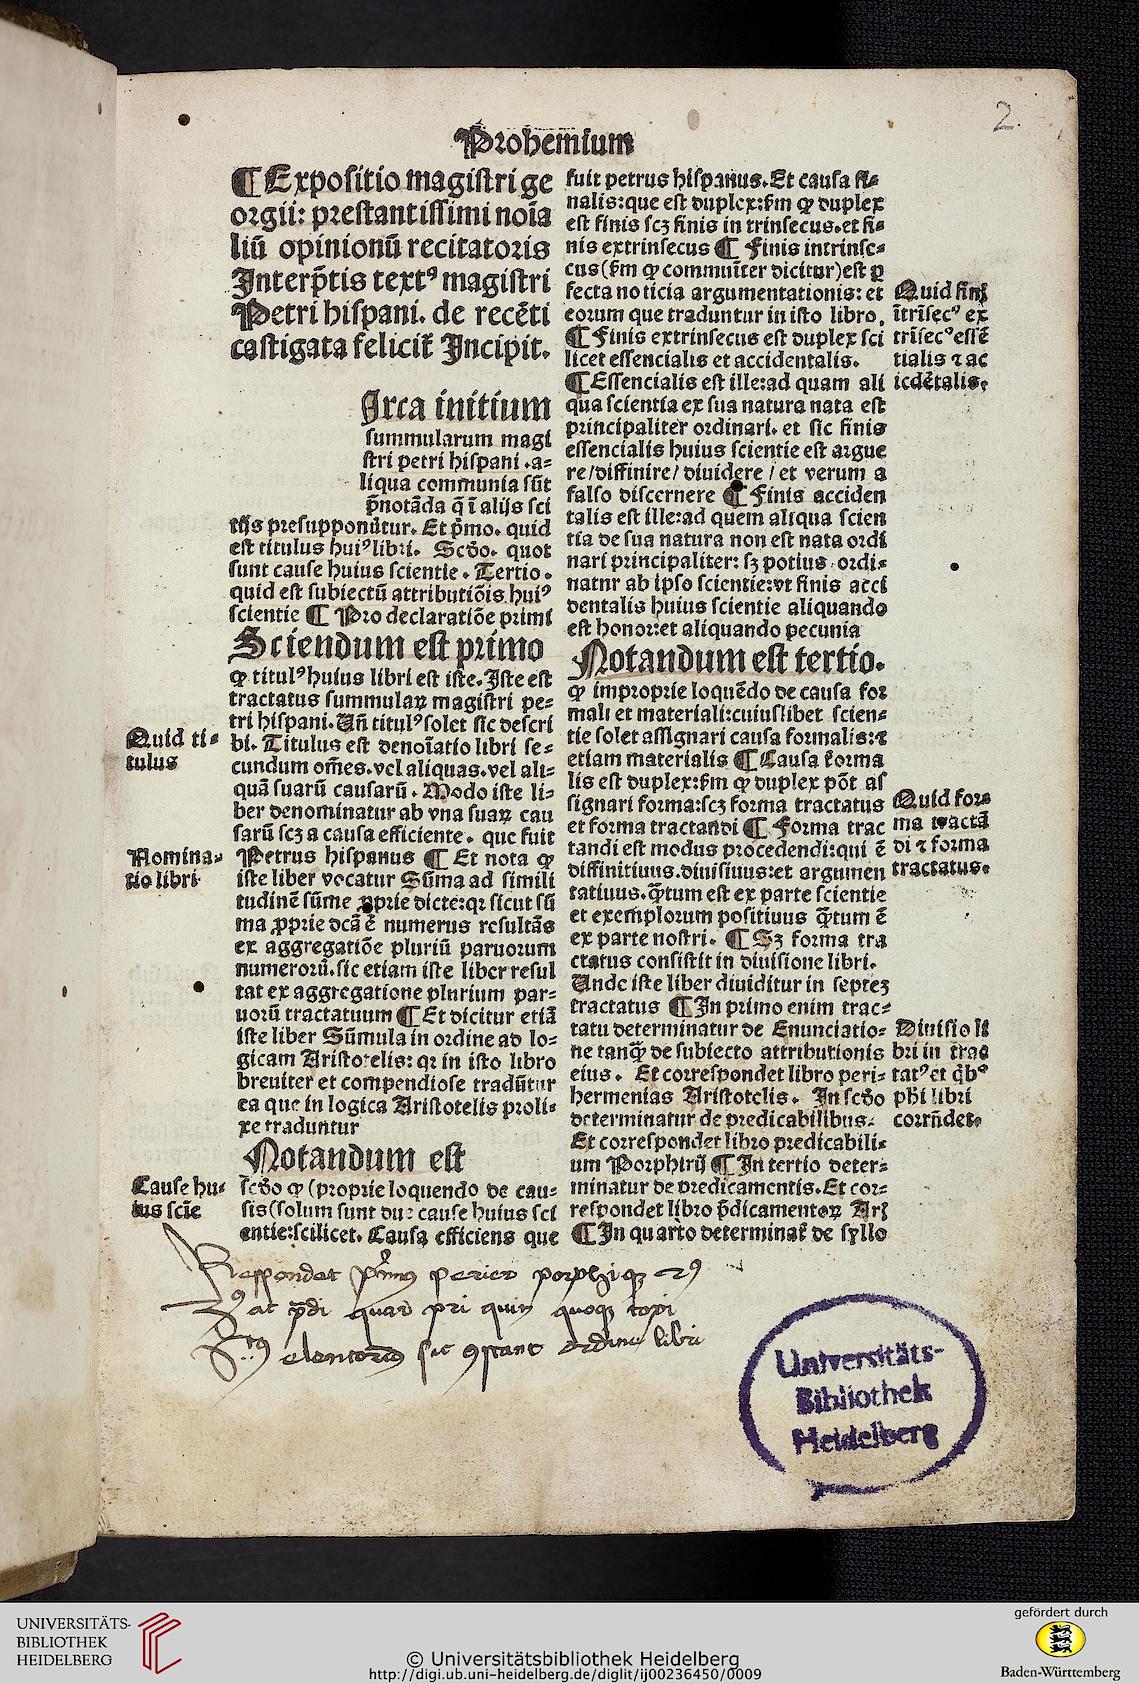 2.
Prohemium
¶ Expositio magistri ge
orgii: prestantissimi noīa
liū opinionū recitatoris
Interp̄tis textꝰ magistri
Petri hispani. de recēti
castigata felicit̄ Incipit.
Irca initium
summularum magi
stri petri hispani .a-
liqua communia sūt
p̄notāda q̄ ī alijs sci
tijs presupponūtur. Et pͥmo. quid
est titulus huiꝰ libri. Scd̓o. quot
sunt cause huius scientie. Tertio.
quid est subiectū attributiōis huiꝰ
scientie ¶ Pro declaratiōe primi
Sciendum est primo
ꝙ titulꝰ huius libri est iste. Iste est
tractatus summulaꝝ magistri pe-
tri hispani. Vñ titulꝰ solet sic descri
Quid ti-
tulus
bi. Titulus est denoīatio libri se-
cundum om̄es. vel aliquas. vel ali-
quā suarū causarū. Modo iste li-
ber denominatur ab vna suaꝝ cau
sarū scꝫ a causa efficiente. que fuit
Nomina-
tio libri
Petrus hispanus ¶ Et nota ꝙ
iste liber vocatur Sūma ad simili
tudinē sūme ꝓprie dicte: qꝛ sicut sū
ma ꝓprie dcā ē numerus resultās
ex aggregatiōe pluriū paruorum
numerorū. sic etiam iste liber resul
tat ex aggregatione plurium par-
uorū tractatuum ¶ Et dicitur etiā
iste liber Sūmula in ordine ad lo-
gicam Aristotelis: qꝛ in isto libro
breuiter et compendiose tradūtur
ea que in logica Aristotelis proli-
xe traduntur
Notandum est
Cause hu-
ius scīe
scd̓o ꝙ (proprie loquendo de cau-
sis (solum sunt due cause huius sci
entie: scilicet. Causa efficiens que
fuit petrus hispanus. Et causa fi-
nalis: que est duplex: s̄m ꝙ duplex
est finis scꝫ finis in trinsecus. et fi-
nis extrinsecus ¶ Finis intrinse-
cus (s̄m ꝙ commuīter dicitur) est ꝑ
fecta noticia argumentationis: et
eorum que traduntur in isto libro.
¶ Finis extrinsecus est duplex sci
licet essencialis et accidentalis.
Quid finis
ītrīsecꝰ ex
trīsecꝰ essē
tialis ⁊ ac
icdētalis.
¶ Essencialis est ille: ad quam ali
qua scientia ex sua natura nata est
principaliter ordinari. et sic finis
essencialis huius scientie est argue
re / diffinire / diuidere / et verum a
falso discernere ¶ Finis acciden
talis est ille: ad quem aliqua scien
tia de sua natura non est nata ordi
nari principaliter: sꝫ potius ordi-
natnr ab ipso scientie: vt finis acci
dentalis huius scientie aliquando
est honor: et aliquando pecunia
Notandum est tertio.
ꝙ improprie loquēdo de causa for
mali et materiali: cuiuslibet scien-
tie solet assignari causa formalis: ⁊
etiam materialis ¶ Causa forma
lis est duplex: s̄m ꝙ duplex pōt as
signari forma: scꝫ forma tractatus
et forma tractandi ¶ Forma trac
tandi est modus procedendi: qui ē
diffinitiuus. diuisiuus: et argumen
Quid for-
ma tractā
di ⁊ forma
tractatus.
tatiuus. q̄tum est ex parte scientie
et exemplorum positiuus q̄tum ē
ex parte nostri. ¶ Sꝫ forma tra
ctatus consistit in diuisione libri.
Unde iste liber diuiditur in septeꝫ
tractatus ¶ In primo enim trac-
tatu determinatur de Enunciatio-
ne tanq̄ de subiecto attributionis
eius. Et correspondet libro peri-
hermenias Aristotelis. In scd̓o
determinatur de predicabilibus.
Diuisio li
bri in trac
tatꝰ et qͥbꝰ
phi libri
corrn̄det.
Et correspondet libro predicabili-
um Porphirij ¶ In tertio deter-
minatur de predicamentis. Et cor-
respondet libro p̄dicamentoꝝ Ari
¶ In quarto determinat̄ de syllo
Respondet
ordine libri
Universitäts-
Bibliothek
Heidelberg
UNIVERSITÄTS-
BIBLIOTHEK
HEIDELBERG
© Universitätsbibliothek Heidelberg
http://digi.ub.uni-heidelberg.de/diglit/ij00236450/0009
gefördert durch
Baden-Württemberg